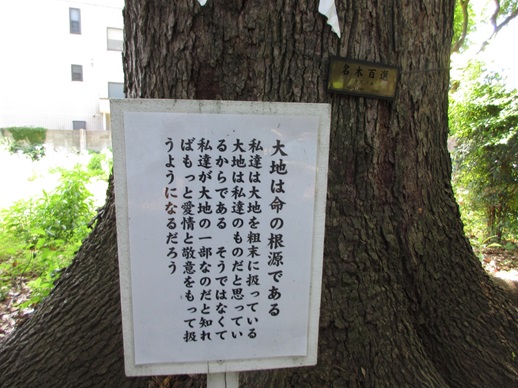 大地は命の根源である
私達は大地を粗末に扱っている
大地は私達のものだと思ってい
るからである　そうではなくて
私達が大地の一部なのだと知れ
ばもっと愛情と敬意をもって扱
うようになるだろう
名木百選